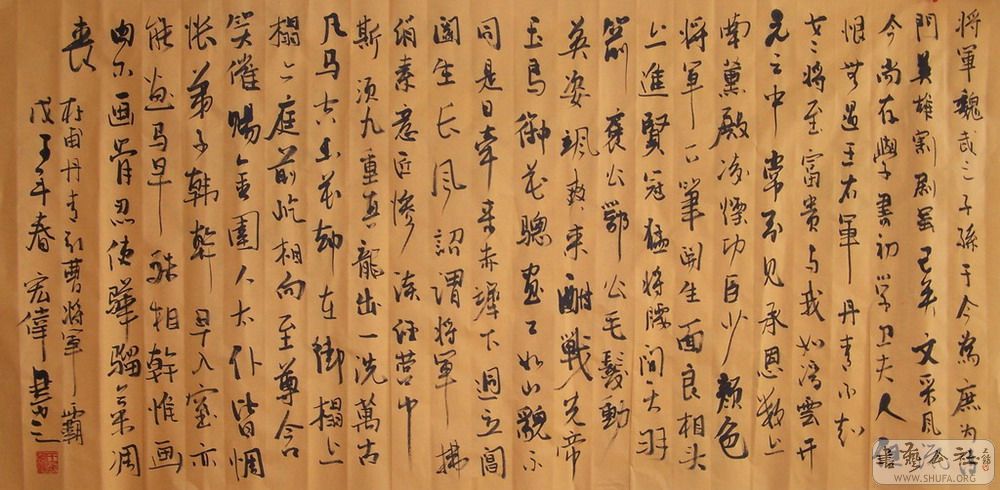 將軍魏武之子孫于今為庶为
門英雄割剧虽已矣文采風
今尚存學書初学卫夫人
恨無過王右軍丹青不知
老將至富貴与我如浮雲开
元之中常引見承恩数上
南薰殿凌煙功臣少颜色
將軍下筆開生面良相头
上進賢冠猛將腰间大羽
箭褒公鄂公毛髮動
英姿颯爽来酣戰先帝
玉馬御花驄畫工如山貌不
同是日牵来赤墀下迥立閶
闔生長风詔謂將軍拂
絹素意匠慘淡经营中
斯須九重真龍出一洗萬古
凡马空玉花却在御榻上
榻上庭前屹相向至尊含
笑催賜金圉人太仆皆惆
怅弟子韓幹早入室亦
能畫马早殊相幹惟画
肉不画骨忍使驊騮气凋
喪
杜甫丹青引曹將軍霸
戊子年春宏偉書之
書藝公社
WWW.SHUFA.ORG